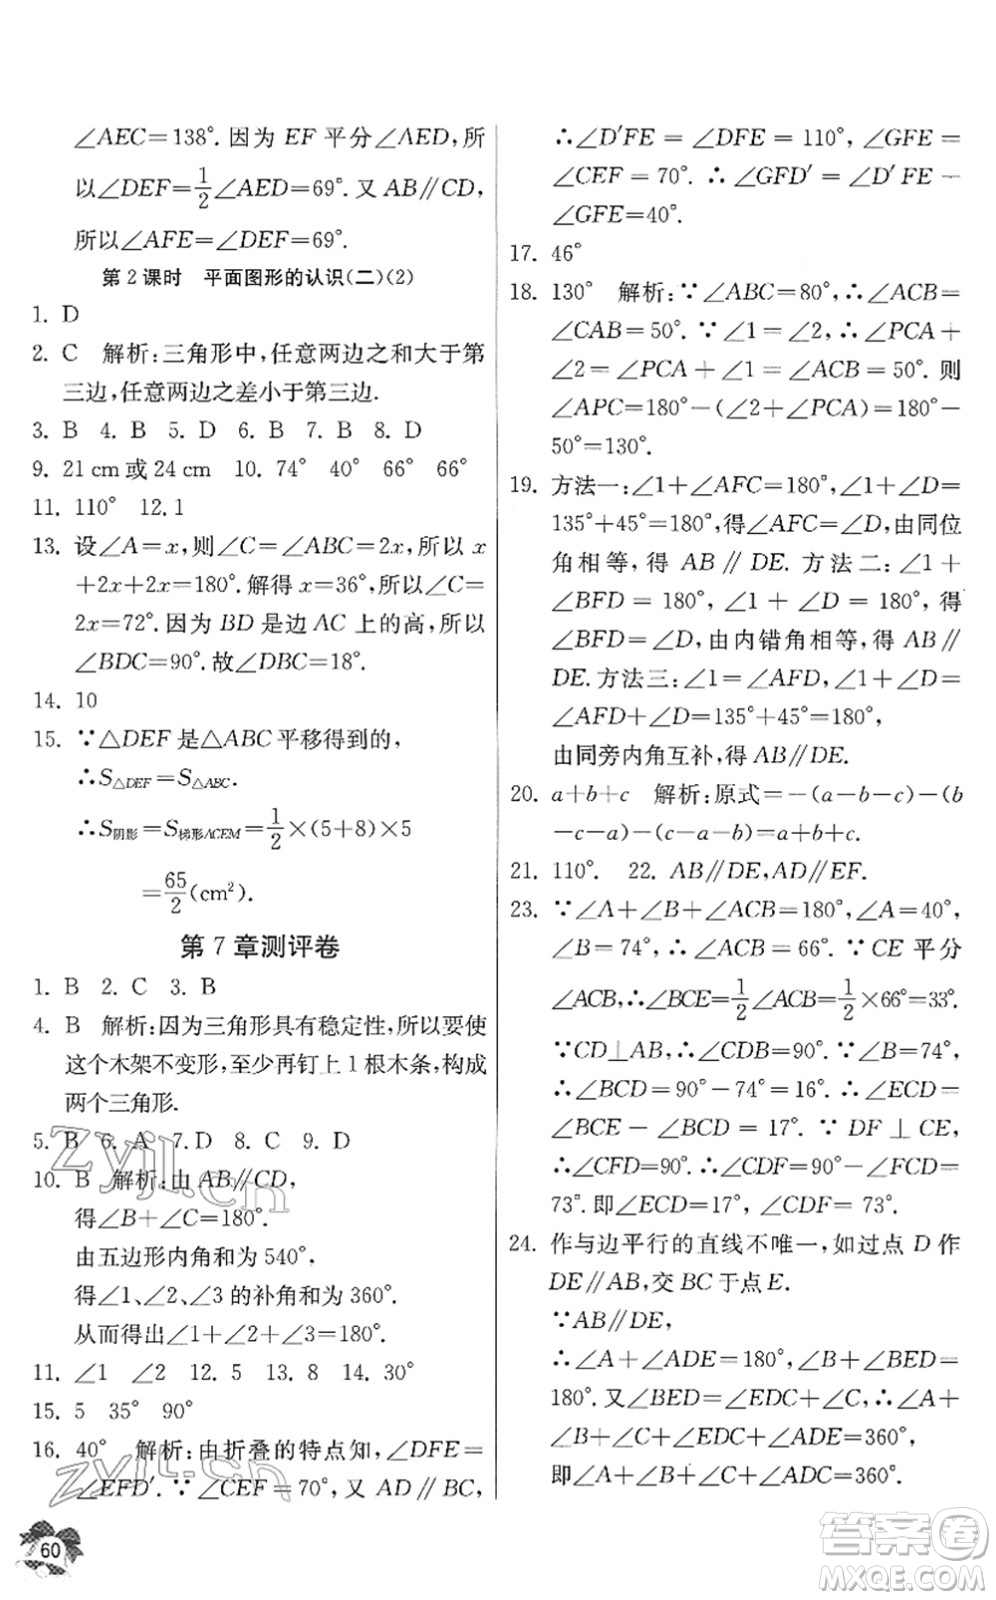 ∠AEC=138°. 因为 EF 平分∠AED, 所
以∠DEF=1/2∠AED=69°. 又 AB∥CD,
所以∠AFE=∠DEF=69°.
第 2 课时 平面图形的认识(二)(2)
1. D
2. C 解析:三角形中,任意两边之和大于第
三边,任意两边之差小于第三边.
3. B 4. B 5. D 6. B 7. B 8. D
9. 21 cm 或 24 cm 10. 74° 40° 66° 66°
11. 110° 12. 1
13. 设∠A=x,则∠C=∠ABC=2x,所以 x
+2x+2x=180°. 解得 x=36°,所以∠C=
2x=72°. 因为 BD 是边 AC 上的高,所以
∠BDC=90°. 故∠DBC=18°.
14. 10
15. ∵△DEF 是△ABC 平移得到的,
∴S△DEF=S△ABC.
∴S阴影=S梯形ACEM=1/2×(5+8)×5
=65/2(cm²).
第 7 章测评卷
1. B 2. C 3. B
4. B 解析:因为三角形具有稳定性,所以要使
这个木架不变形,至少再钉上 1 根木条,构成
两个三角形.
5. B 6. A 7. D 8. C 9. D
10. B 解析:由 AB∥CD,
得∠B+∠C=180°.
由五边形内角和为 540°,
得∠1、∠2、∠3 的补角和为 360°.
从而得出∠1+∠2+∠3=180°.
11. ∠1 ∠2 12. 5 13. 8 14. 30°
15. 5 35° 90°
16. 40° 解析:由折叠的特点知,∠DFE=
∠EFD′. ∵∠CEF=70°, 又 AD∥BC,
60
∴∠D′FE=∠DFE=110°, ∠GFE=
∠CEF=70°. ∴∠GFD′=∠D′FE-
∠GFE=40°.
17. 46°
18. 130° 解析:∵∠ABC=80°,∴∠ACB=
∠CAB=50°. ∵∠1=∠2,∴∠PCA+
∠2=∠PCA+∠1=∠ACB=50°. 则
∠APC=180°-(∠2+∠PCA)=180°-
50°=130°.
19. 方法一:∠1+∠AFC=180°,∠1+∠D=
135°+45°=180°,得∠AFC=∠D,由同位
角相等,得 AB∥DE. 方法二:∠1+
∠BFD=180°, ∠1+∠D=180°, 得
∠BFD=∠D,由内错角相等,得 AB∥
DE. 方法三:∠1=∠AFD,∠1+∠D=
∠AFD+∠D=135°+45°=180°,
由同旁内角互补,得 AB∥DE.
20. a+b+c 解析:原式=-(a-b-c)-(b
-c-a)-(c-a-b)=a+b+c.
21. 110°. 22. AB∥DE,AD∥EF.
23. ∵∠A+∠B+∠ACB=180°,∠A=40°,
∠B=74°,∴∠ACB=66°. ∵CE 平分
∠ACB,∴∠BCE=1/2∠ACB=1/2×66°=33°.
∵CD⊥AB,∴∠CDB=90°. ∵∠B=74°,
∴∠BCD=90°-74°=16°. ∴∠ECD=
∠BCE-∠BCD=17°. ∵DF⊥CE,
∴∠CFD=90°. ∴∠CDF=90°-∠FCD=
73°. 即∠ECD=17°, ∠CDF=73°.
24. 作与边平行的直线不唯一,如过点 D 作
DE∥AB,交 BC 于点 E.
∵AB∥DE,
∴∠A+∠ADE=180°,∠B+∠BED=
180°. 又∠BED=∠EDC+∠C,∴∠A+
∠B+∠C+∠EDC+∠ADE=360°,
即∠A+∠B+∠C+∠ADC=360°.
zyjl.cn
zyjl.cn
答案圈
MXQE.COM